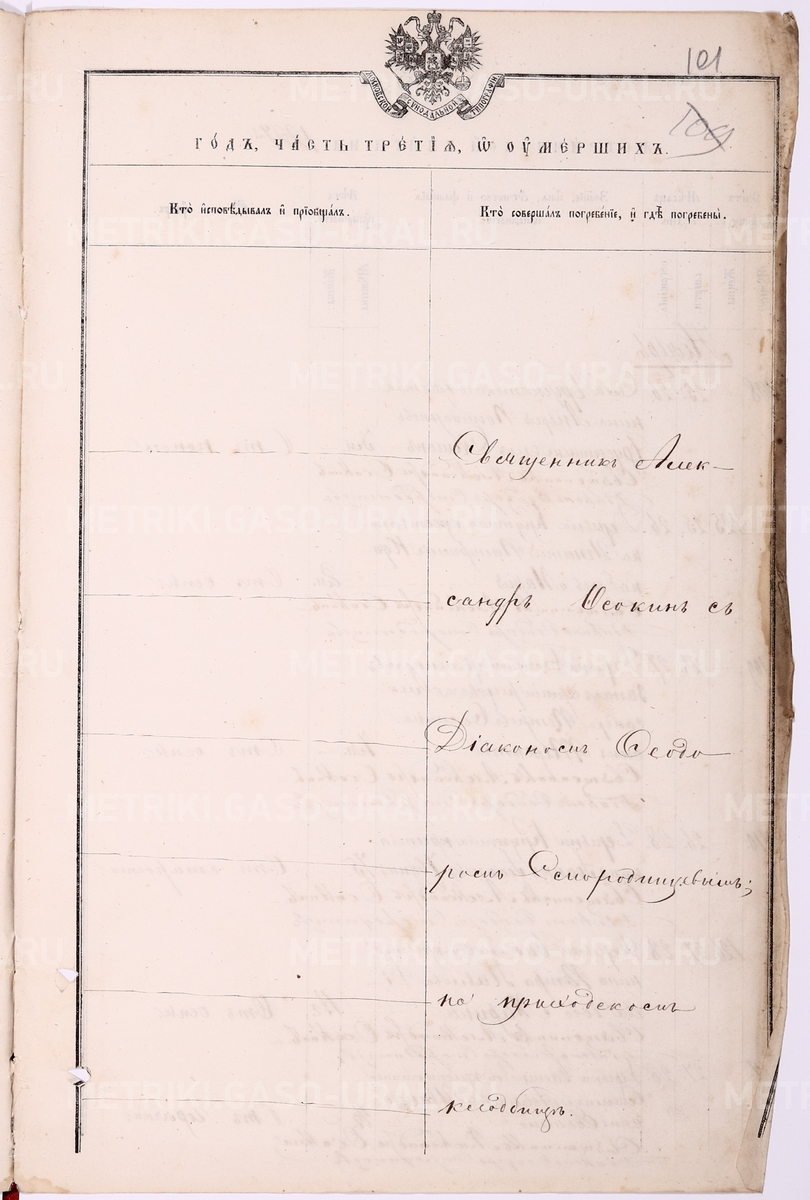 101
го́дъ, ча́сть тре́тїѧ, ѡ҆ ᲂу҆ме́ршихъ.
Кто̀ и҆сповѣ́дывалъ и҆ прїѡбща́лъ.
Кто̀ соверша́лъ погребе́нїе, и҆ гдѣ̀ погребены̀.
Священникъ Алек-
сандръ Осокинъ съ
Діакономъ Ѳеодо-
ромъ
на приходскомъ
кладбищѣ.
METRIKI.GASO-URAL.RU